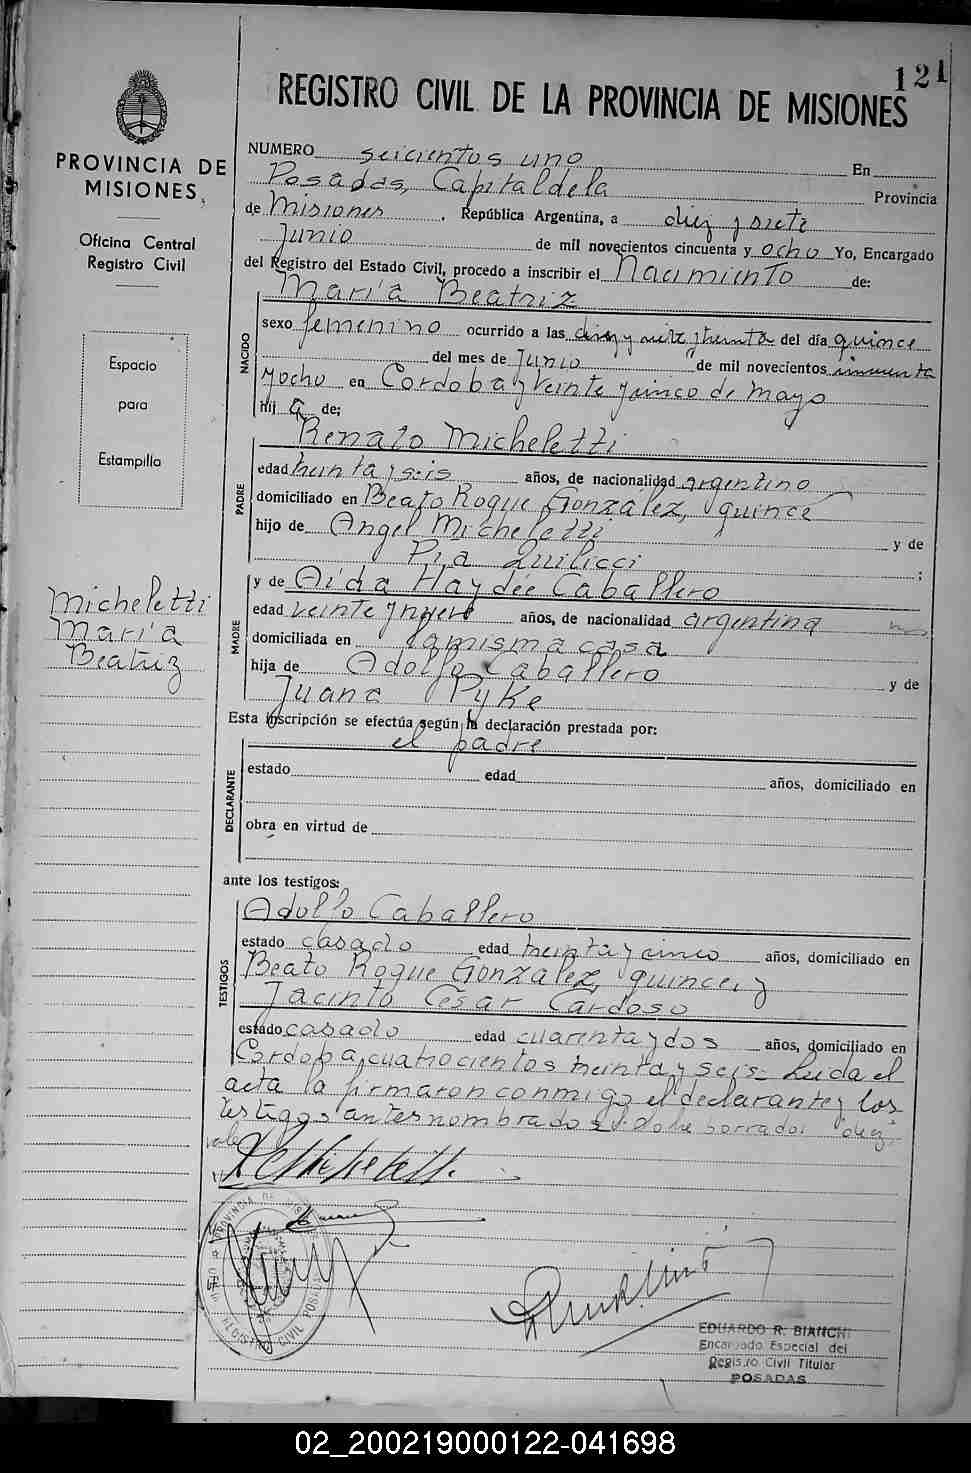 121
REGISTRO CIVIL DE LA PROVINCIA DE MISIONES
PROVINCIA DE
MISIONES
Oficina Central
Registro Civil
Espacio
para
Estampilla
Micheletti
María
Beatriz
NUMERO seicientos uno En
Posadas, Capital de la Provincia
de Misiones, República Argentina, a diez y siete
Junio de mil novecientos cincuenta y ocho Yo, Encargado
del Registro del Estado Civil, procedo a inscribir el Nacimiento de:
María Beatriz
NACIDO
sexo femenino ocurrido a las diez y treinta del día quince
del mes de Junio de mil novecientos cincuenta
y ocho en Cordoba y veinte y cinco de Mayo
Hij a de;
Renato Micheletti
PADRE
edad treinta y seis años, de nacionalidad argentino
domiciliado en Beato Roque González, quince
hijo de Angel Micheletti y de
Pia Quilicci ;
y de Aída Haydée Caballero
MADRE
edad veinte y nueve años, de nacionalidad argentina
domiciliada en la misma casa
hija de Adolfo Caballero y de
Juana Pyke
Esta inscripción se efectúa según la declaración prestada por:
el padre
DECLARANTE
estado edad años, domiciliado en
obra en virtud de
ante los testigos:
Adolfo Caballero
TESTIGOS
estado casado edad treinta y cinco años, domiciliado en
Beato Roque González, quince, y
Jacinto Cesar Cardoso
estado casado edad cuarenta y dos años, domiciliado en
Cordoba, cuatrocientos treinta y seis- Leida el
acta la firmaron conmigo el declarante y los
testigos antes nombrados. Sobre borrado: "diez"
vale
PROVINCIA DE MISIONES
REGISTRO CIVIL POSADAS
EDUARDO R. BIANCHI
Encargado Especial del
Registro Civil Titular
POSADAS
02_200219000122-041698